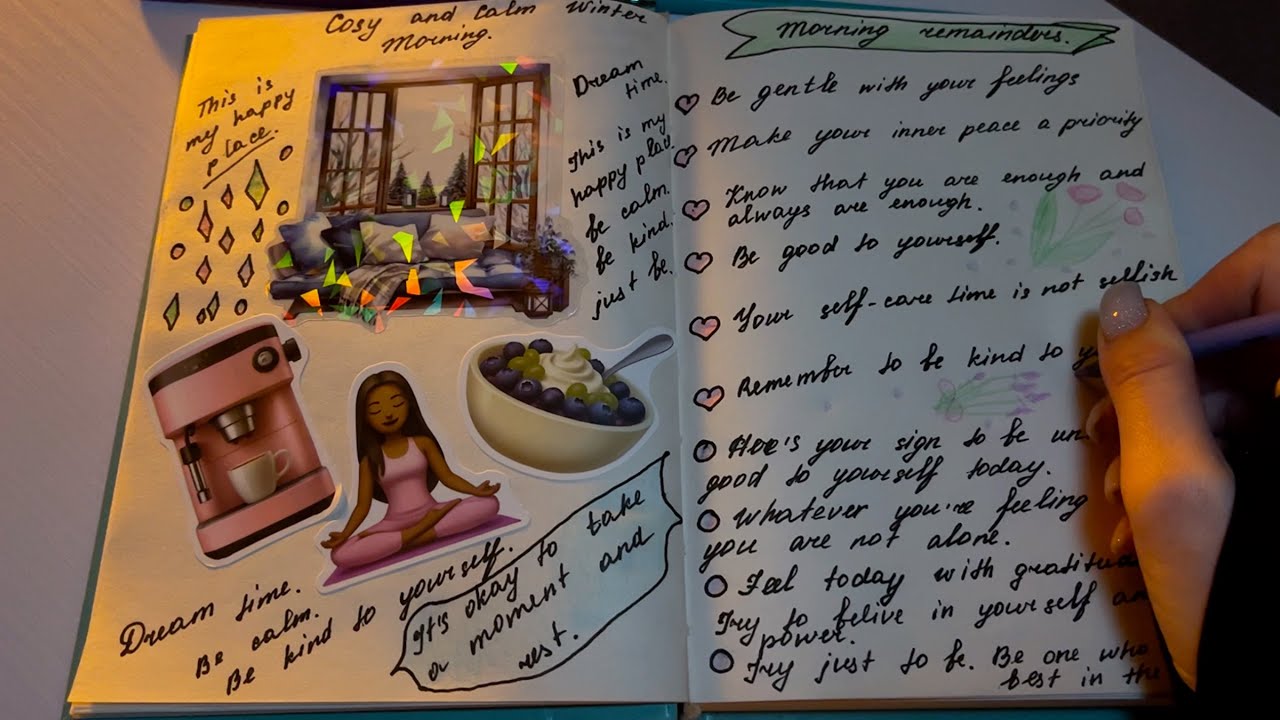 Cosy and Calm Winter
Morning.
This is
my happy
place.
Dream
time.
This is my
happy plac
be calm.
be kind.
just be.
Dream time.
Be calm.
Be kind to yourself.
It's okay to take
a moment and
rest.
Morning remainders.
Be gentle with your feelings
Make your inner peace a priority
Know that you are enough and
always are enough.
Be good to yourself.
Your self-care time is not selfish
Remember to be kind to y
your sign to be un
good to yourself today.
Whatever you're feeling
you are not alone.
Feel today with gratitud
Try to felive in yourself an
power.
Try just to be. Be one who
best in the